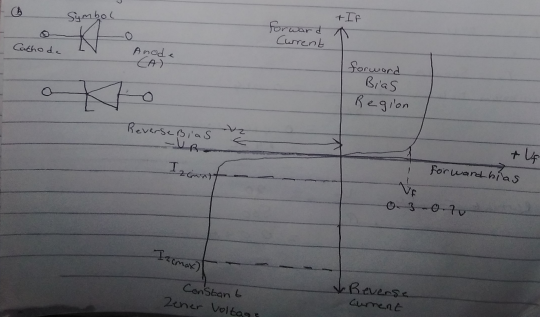 Symbol
Cathode
Anode
(A)
+IF
Forward
Current
Forward
Bias
Region
Reverse Bias
-Vz
-VR
+VF
Forward bias
Iz(max)
VF
0.3-0.7v
Iz(max)
Constant
Zener Voltage
Reverse
Current